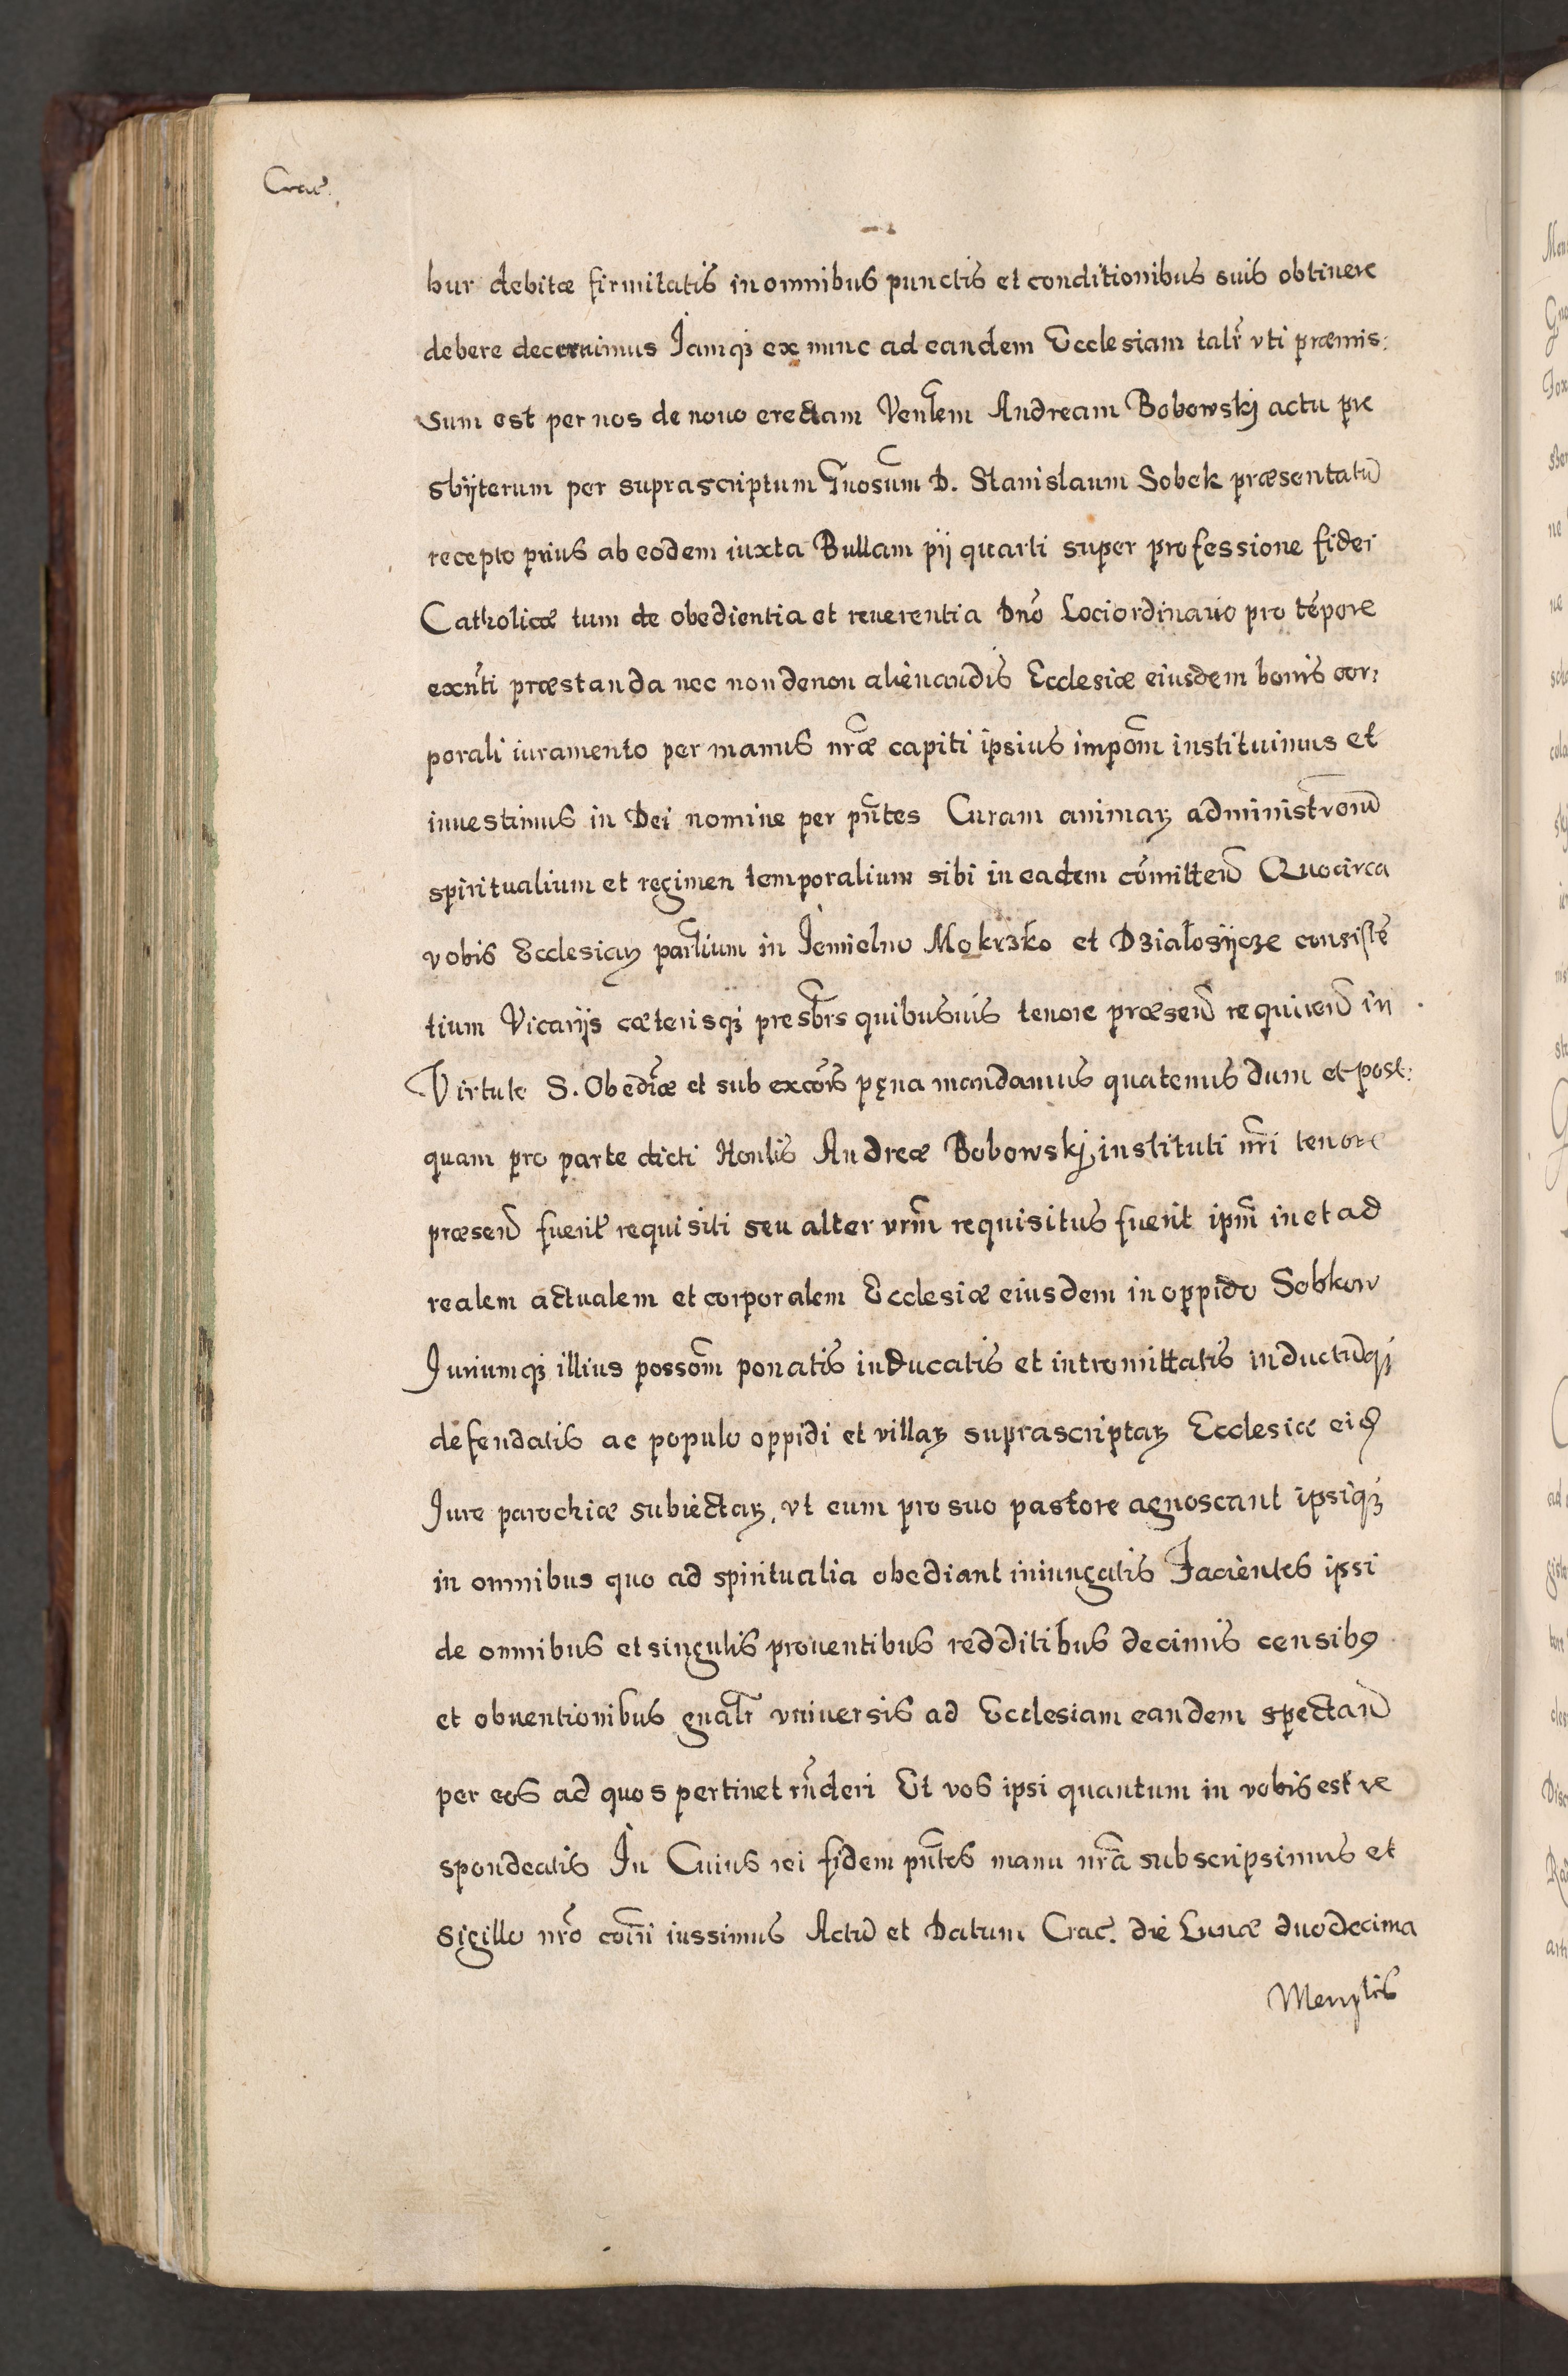 Crac.
bur debitæ firmitatis in omnibus punctis et conditionibus suis obtinere
debere decernimus Jamqȝ ex nunc ad eandem Ecclesiam talr̃ vti præmis:
sum est per nos de nouo erectam Venlem Andream Bobowskj actu pre
sbÿterum per suprascriptum Gnosum D. Stanislaum Sobek præsentatū
recepto prius ab eodem iuxta Bullam pij quarti super professione fidei
Catholicæ tum de obedientia et reuerentia Dnõ Lociordinario pro tẽpore
exñti præstanda nec non de non alienandis Ecclesiæ eiusdem bonis cor:
porali iuramento per manus nr̃æ capiti ipsius impom̃ instituimus et
inuestimus in Dei nomine per pñtes Curam animaꝝ administrõm
spiritualium et regimen temporalium sibi in eadem cõmitteñ Quocirca
vobis Ecclesiaꝝ parlium in Jemielno Mokrzko et Dzialosÿcze consistẽ
tium Vicarijs cæterisqȝ presbr̃s quibusuis tenore præseñ requireñ in
Virtute S. Obedi͂æ et sub excõis pęna mandamus quatenus dum et post:
quam pro parte dicti Honlis Andreæ Bobowskj instituti nr̃i tenore
præseñ fuerit̃ requisiti seu alter vr̃m requisitus fuerit ipm̃ in et ad
realem actualem et corporalem Ecclesiæ eiusdem in oppido Sobkow
Juriumqȝ illius possom̃ ponatis inducatis et intromittatis inductũqȝ
defendatis ac populo oppidi et villaꝝ suprascriptaꝝ Ecclesiæ eid
Jure parochiæ subiectaꝝ, vt eum pro suo pastore agnoscant ipsiqȝ
in omnibus quo ad spiritualia obediant iniungatis Facientes ipsi
de omnibus et singulis prouentibus redditibus decimis censibꝰ
et obuentionibus gnalr̃ vniuersis ad Ecclesiam eandem spectañ
per eos ad quos pertinet rñderi Et vos ipsi quantum in vobis est re
spondeatis In Cuius rei fidem pñtes manu nr̃a subscripsimus et
sigillo nr̃o com̃i iussimus Actũ et Datum Crac. die Lunæ duodecima
Menstis